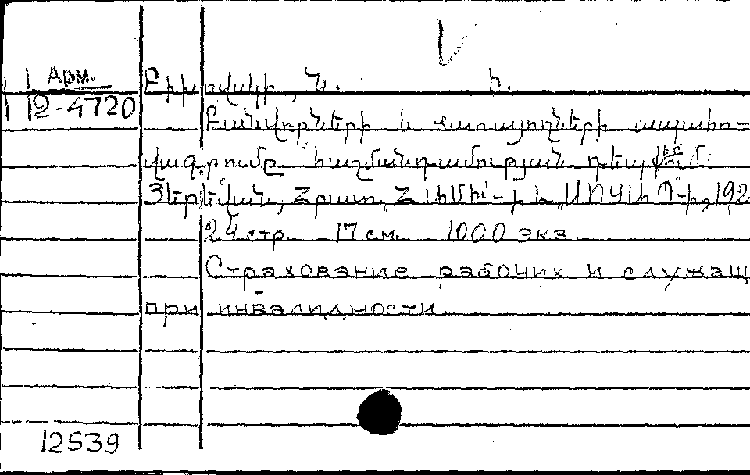 Арм.
12-4720
Բանվորների և ծառայողների ապահո-
վագրումը հաշմանդամության դեպքում
Յերեվան, Հրատ. 192
24 стр. 17 см. 1000 экз.
Страхование рабочих и служащ
при инвалидности
12539